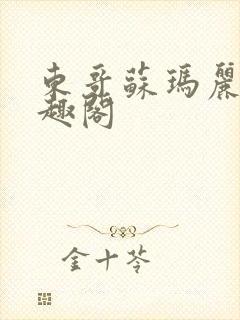 东哥蘇瑪麗
趣閣
金十苓